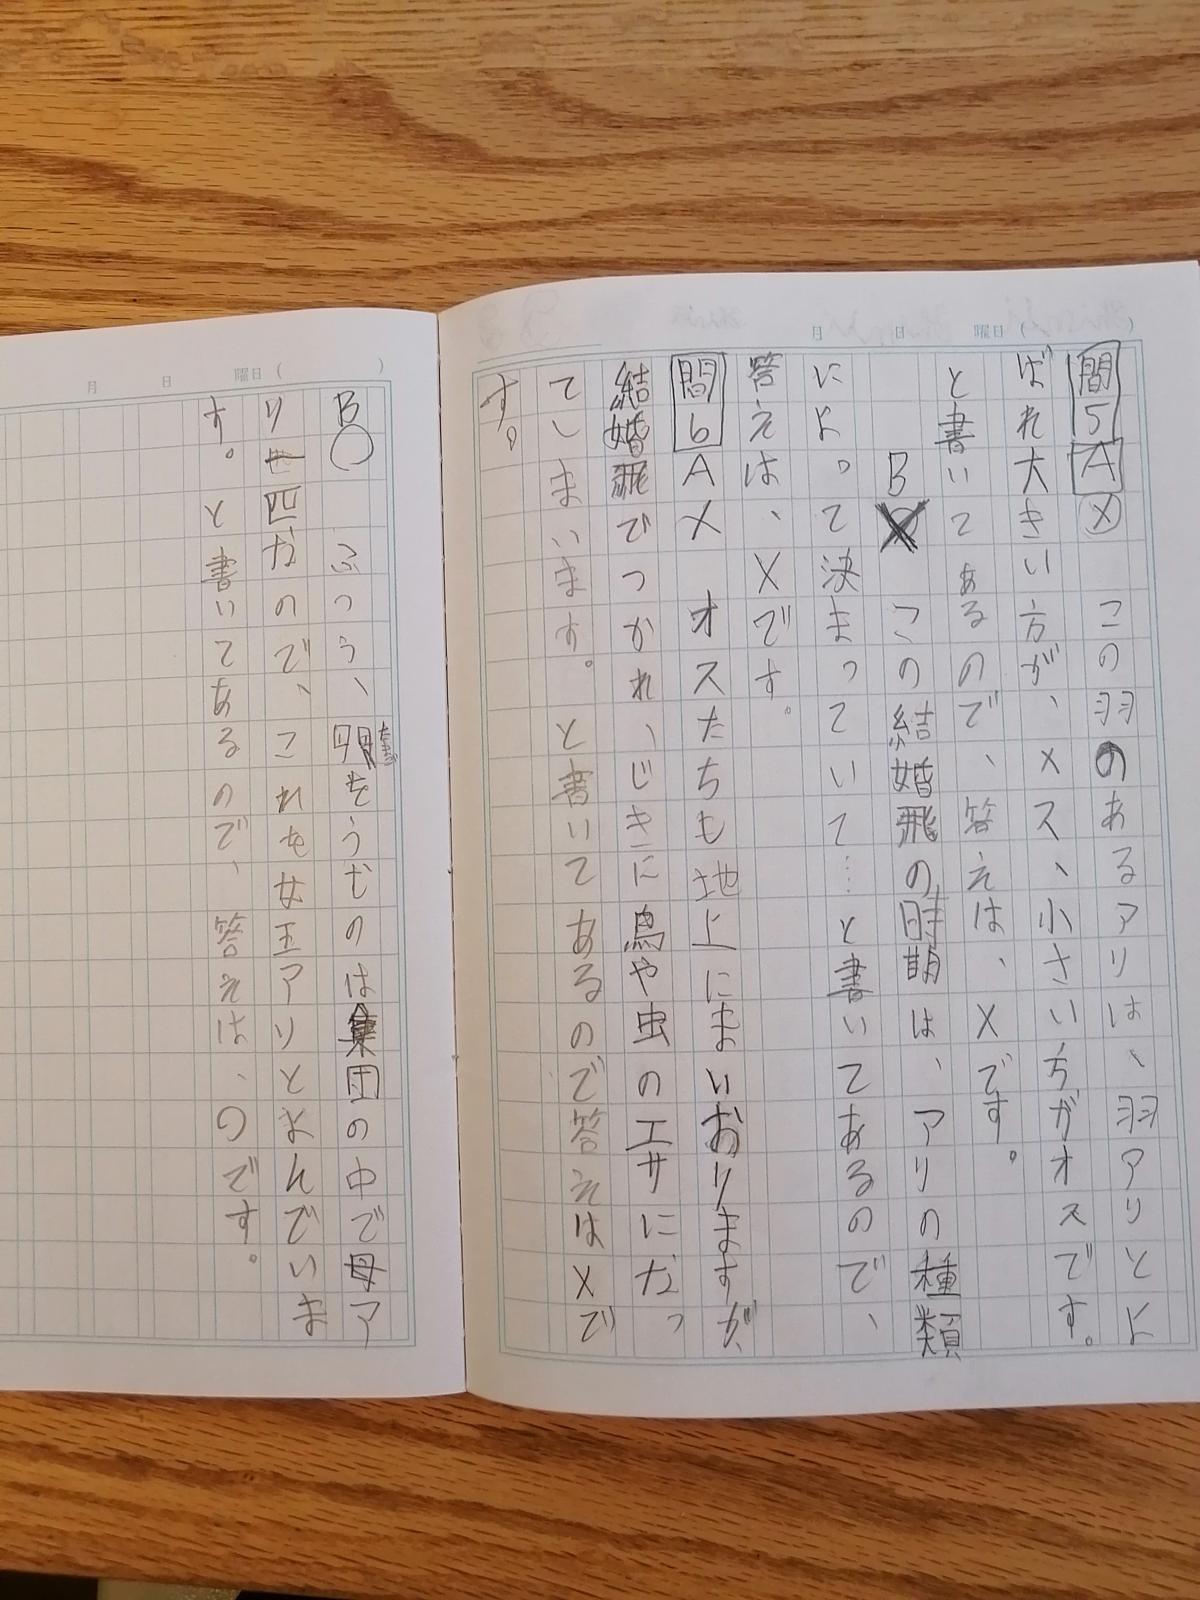 月 日 曜日( )
問5 A X この羽のあるアリは、羽アリとよ
ばれ大きい方が、メス、小さい方がオスです。
と書いてあるので、答えは、Xです。
B X この結婚飛の時期は、アリの種類
によって決まっていて…と書いてあるので、
答えは、Xです。
問6 A X オスたちも地上にまいおりますが、
結婚飛でつかれ、じきに鳥や虫のエサになっ
ていまいます。と書いてあるので答えはXで
す。
月 日 曜日( )
B○ ふつう、をうむのは集団の中で母ア
リ一匹なので、これを女王アリとよんでいま
す。と書いてあるので、答えは、○です。